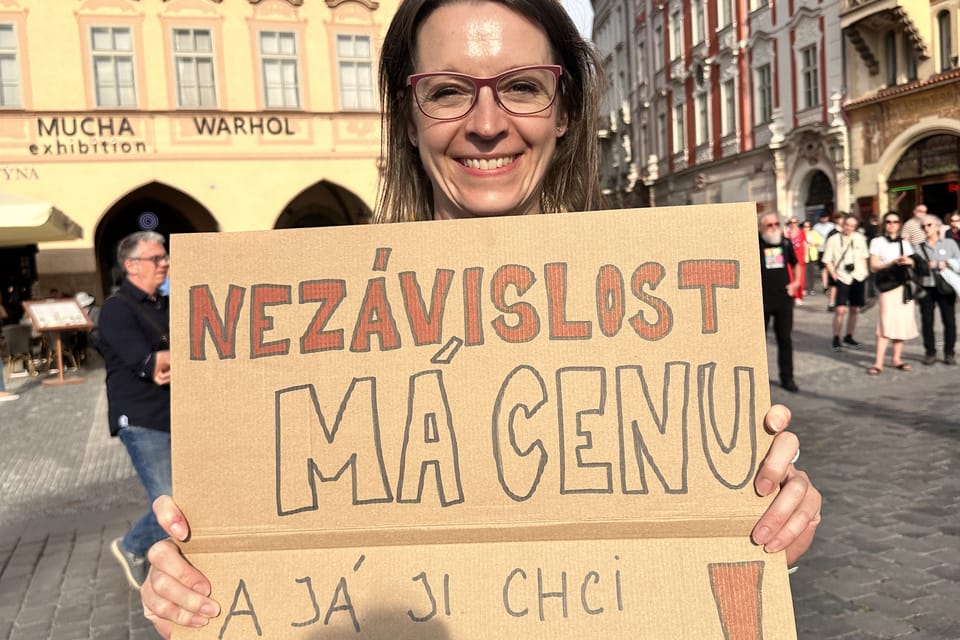 MUCHA WARHOL
exhibition
TYNA
NEZÁVISLOST
MÁ CENU
A JÁ JI CHCI !